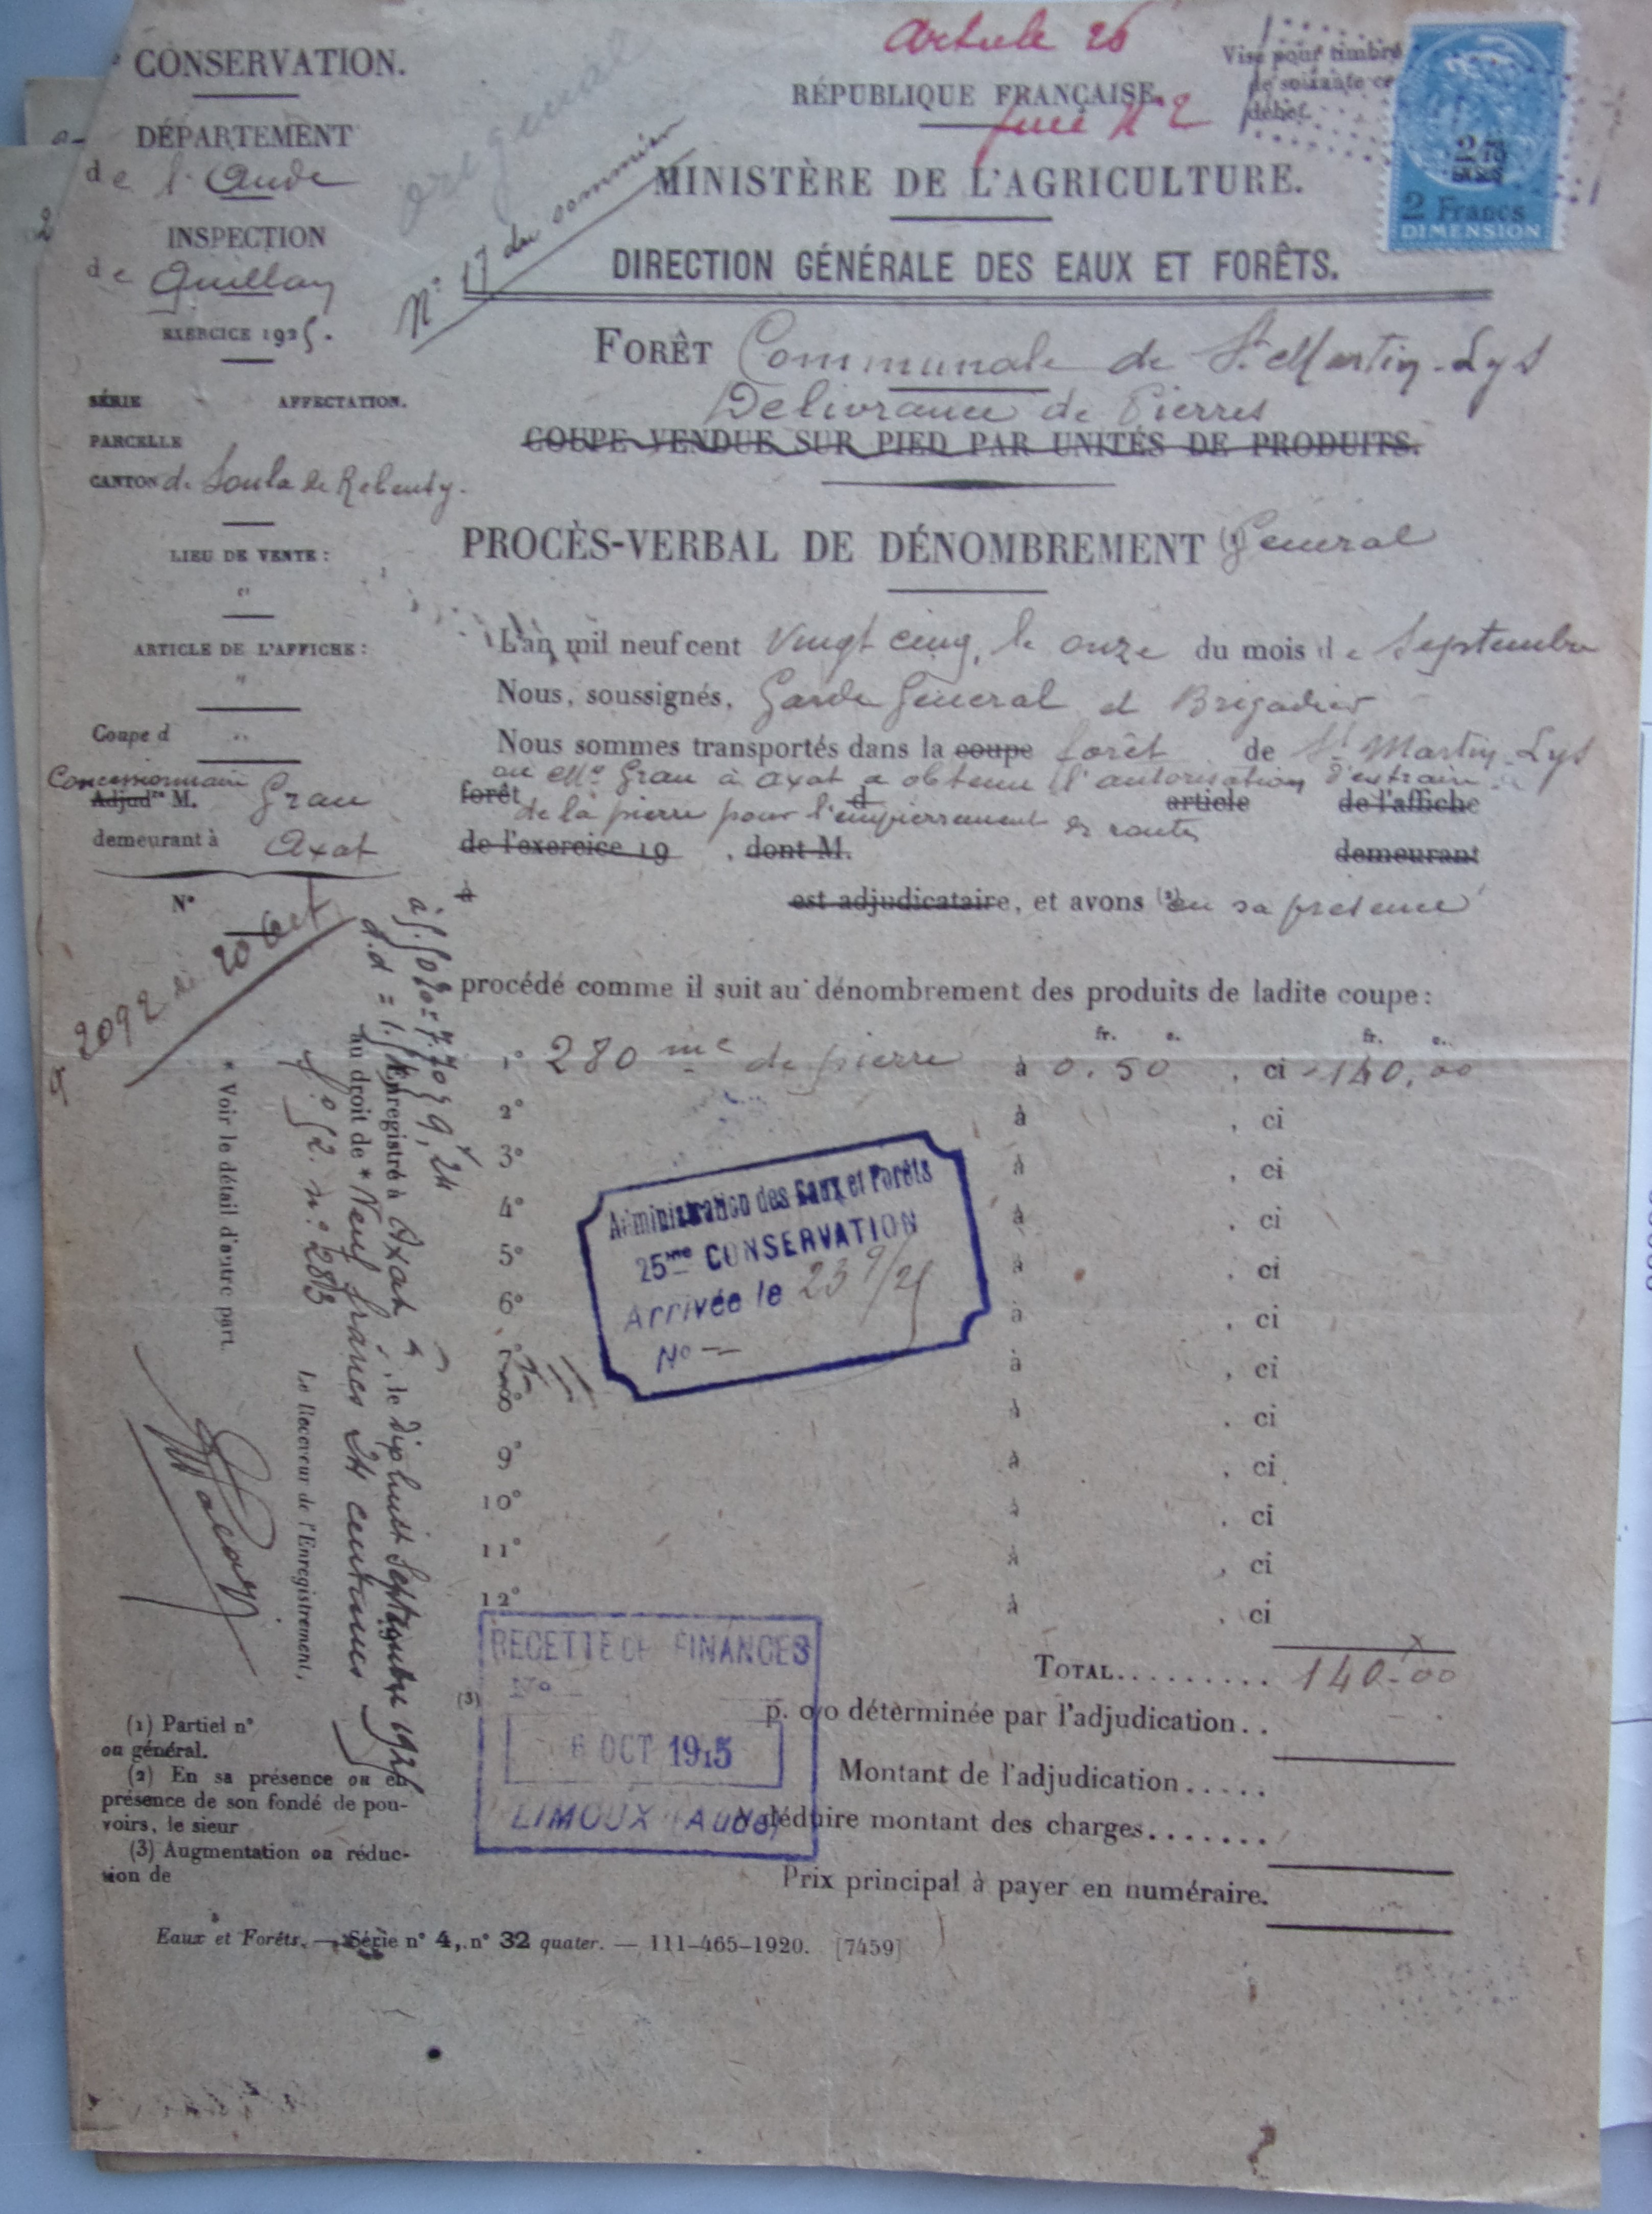 CONSERVATION.
DÉPARTEMENT
de l'Aude
INSPECTION
de Quillan
EXERCICE 1925.
SÉRIE AFFECTATION.
PARCELLE
CANTON de Soula de Rebenty.
LIEU DE VENTE :
"
ARTICLE DE L'AFFICHE :
"
Coupe d "
Concessionnaire
Adjudre M. Grau
demeurant à Axat
N°
2092 du 20 Oct
original
N° 17 du sommier
Article 26
RÉPUBLIQUE FRANÇAISE.
N 2
Visé pour timbre
de soixante ce
débet.
2 Francs
DIMENSION
MINISTÈRE DE L'AGRICULTURE.
DIRECTION GÉNÉRALE DES EAUX ET FORÊTS.
FORÊT Communale de St Martin-Lys
Délivrance de Pierres
COUPE VENDUE SUR PIED PAR UNITÉS DE PRODUITS.
PROCÈS-VERBAL DE DÉNOMBREMENT (1) General
L'an mil neuf cent Vingt cinq, le onze du mois de Septembre
Nous, soussignés, Garde General et Brigadier
Nous sommes transportés dans la coupe forêt de St Martin-Lys
où Mr Grau à Axat a obtenu l'autorisation d'extraire
forêt d article de l'affiche
de la pierre pour l'empierrement de routes
de l'exercice 19 , dont M. demeurant
à est adjudicataire, et avons (2) en sa présence
procédé comme il suit au dénombrement des produits de ladite coupe :
fr. c. fr. c.
1° 280 mc de pierre à 0.50 , ci 140,00
2° à , ci
3° à , ci
4° à , ci
5° à , ci
6° à , ci
7° à , ci
8° à , ci
9° à , ci
10° à , ci
11° à , ci
12° à , ci
TOTAL......... 140-00
(3) p. o/o déterminée par l'adjudication..
Montant de l'adjudication.....
A déduire montant des charges.......
Prix principal à payer en numéraire.
Administration des Eaux et Forêts
25me CONSERVATION
Arrivée le 23 9/25
N° —
RECETTE DE FINANCES
N°
6 OCT 1915
LIMOUX (Aude)
à 5.50% = 7.70 } 9,24
d.d = 1.54
Enregistré à Axat, le dix huit Septembre 1925
au droit de * Neuf francs 24 centimes
f° 52. n° 283
Le Receveur de l'Enregistrement,
* Voir le détail d'autre part.
(1) Partiel n°
ou général.
(2) En sa présence ou en
présence de son fondé de pou-
voirs, le sieur
(3) Augmentation ou réduc-
tion de
Eaux et Forêts. — Série n° 4, n° 32 quater. — 111-465-1920. [7459]